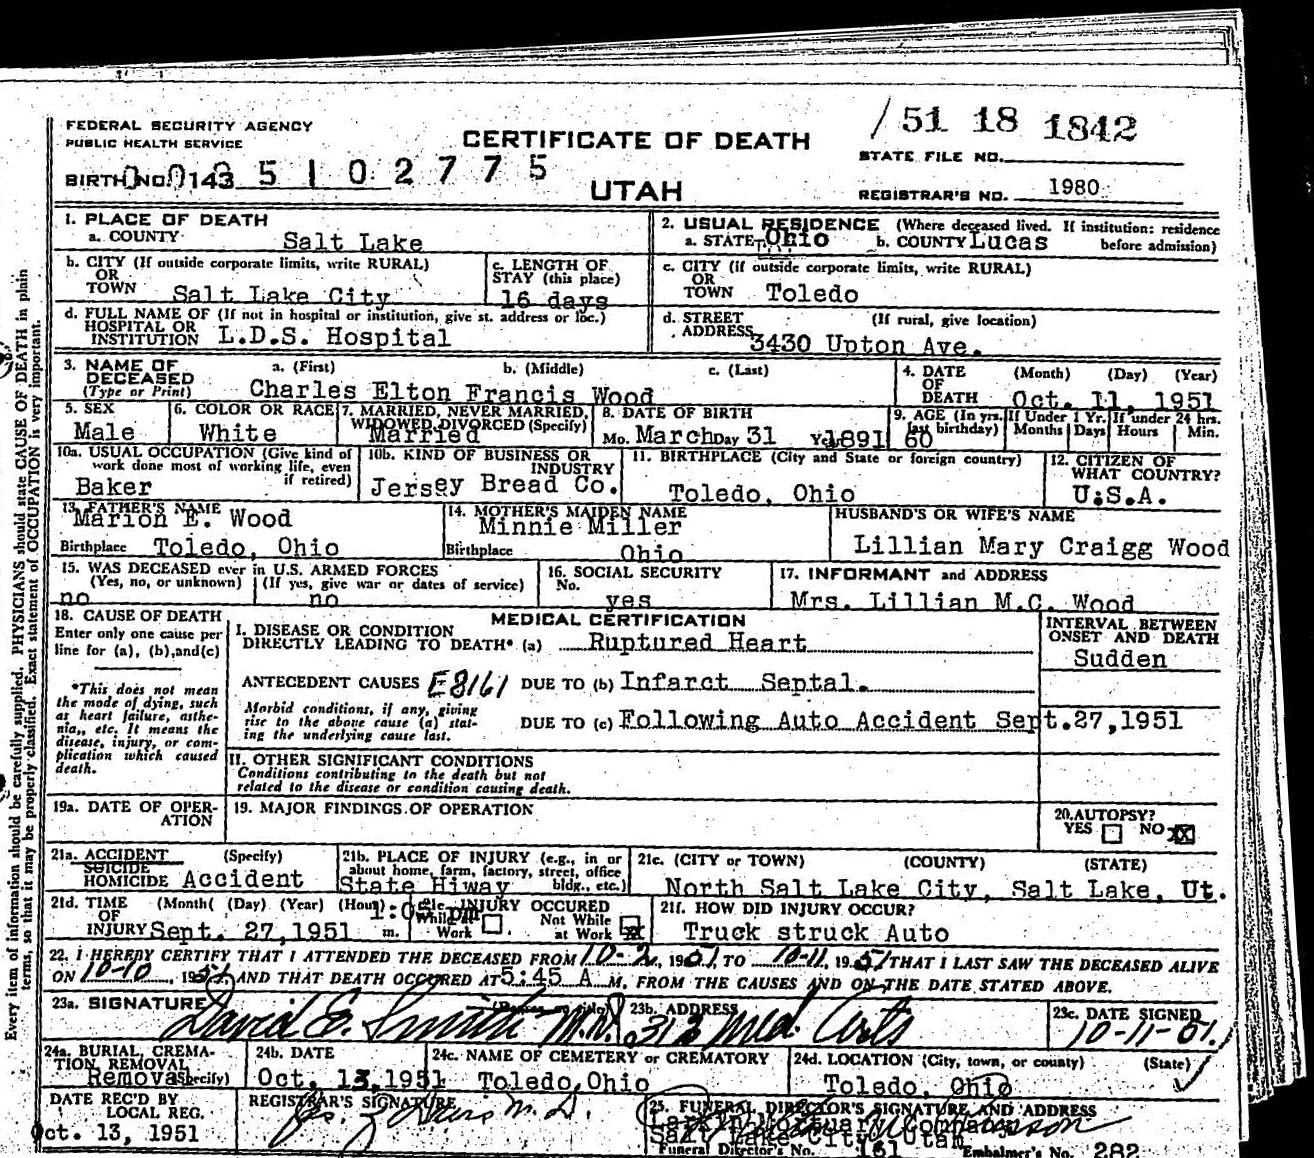 FEDERAL SECURITY AGENCY
PUBLIC HEALTH SERVICE
CERTIFICATE OF DEATH
/51 18 1842
STATE FILE NO.
BIRTH NO. 0143 5 1 0 2 7 7 5
UTAH
REGISTRAR'S NO. 1980
1. PLACE OF DEATH
a. COUNTY Salt Lake
2. USUAL RESIDENCE (Where deceased lived. If institution: residence before admission)
a. STATE Ohio b. COUNTY Lucas
b. CITY (If outside corporate limits, write RURAL) OR TOWN Salt Lake City
c. LENGTH OF STAY (this place) 16 days
c. CITY (If outside corporate limits, write RURAL) OR TOWN Toledo
d. FULL NAME OF (If not in hospital or institution, give st. address or loc.) HOSPITAL OR INSTITUTION L.D.S. Hospital
d. STREET ADDRESS (If rural, give location) 3430 Upton Ave.
3. NAME OF DECEASED (Type or Print) a. (First) b. (Middle) c. (Last)
Charles Elton Francis Wood
4. DATE OF DEATH (Month) (Day) (Year) Oct. 11, 1951
5. SEX Male
6. COLOR OR RACE White
7. MARRIED, NEVER MARRIED, WIDOWED, DIVORCED (Specify) Married
8. DATE OF BIRTH Mo. March Day 31 Year 1891
9. AGE (In yrs. last birthday) 60
If Under 1 Yr. Months Days
If under 24 hrs. Hours Min.
10a. USUAL OCCUPATION (Give kind of work done most of working life, even if retired) Baker
10b. KIND OF BUSINESS OR INDUSTRY Jersey Bread Co.
11. BIRTHPLACE (City and State or foreign country) Toledo, Ohio
12. CITIZEN OF WHAT COUNTRY? U.S.A.
13. FATHER'S NAME Marion E. Wood
Birthplace Toledo, Ohio
14. MOTHER'S MAIDEN NAME Minnie Miller
Birthplace Ohio
HUSBAND'S OR WIFE'S NAME
Lillian Mary Craigg Wood
15. WAS DECEASED ever in U.S. ARMED FORCES
(Yes, no, or unknown) (If yes, give war or dates of service)
no no
16. SOCIAL SECURITY No. yes
17. INFORMANT and ADDRESS
Mrs. Lillian M.C. Wood
18. CAUSE OF DEATH
Enter only one cause per line for (a), (b), and (c)
*This does not mean the mode of dying, such as heart failure, asthenia, etc. It means the disease, injury, or complication which caused death.
MEDICAL CERTIFICATION
I. DISEASE OR CONDITION DIRECTLY LEADING TO DEATH* (a) Ruptured Heart
INTERVAL BETWEEN ONSET AND DEATH
Sudden
ANTECEDENT CAUSES E8161 DUE TO (b) Infarct Septal.
Morbid conditions, if any, giving rise to the above cause (a) stating the underlying cause last.
DUE TO (c) Following Auto Accident Sept.27,1951
II. OTHER SIGNIFICANT CONDITIONS
Conditions contributing to the death but not related to the disease or condition causing death.
19a. DATE OF OPERATION
19. MAJOR FINDINGS OF OPERATION
20. AUTOPSY?
YES NO X
21a. ACCIDENT SUICIDE HOMICIDE (Specify) Accident
21b. PLACE OF INJURY (e.g., in or about home, farm, factory, street, office bldg., etc.) State Hiway
21c. (CITY or TOWN) (COUNTY) (STATE)
North Salt Lake City, Salt Lake, Ut.
21d. TIME OF INJURY (Month) (Day) (Year) (Hour) Sept. 27,1951 pm m.
21e. INJURY OCCURED While at Work Not While at Work
21f. HOW DID INJURY OCCUR?
Truck struck Auto
22. I HEREBY CERTIFY THAT I ATTENDED THE DECEASED FROM 10-2, 1951 TO 10-11, 1951 THAT I LAST SAW THE DECEASED ALIVE
ON 10-10, 1951 AND THAT DEATH OCCURED AT 5:45 A M. FROM THE CAUSES AND ON THE DATE STATED ABOVE.
23a. SIGNATURE David E. Smith M.D.
23b. ADDRESS 313 Med. Arts
23c. DATE SIGNED 10-11-51.
24a. BURIAL, CREMATION, REMOVAL (Specify) Removal
24b. DATE Oct. 13,1951
24c. NAME OF CEMETERY or CREMATORY Toledo,Ohio
24d. LOCATION (City, town, or county) (State)
Toledo, Ohio
DATE REC'D BY LOCAL REG.
Oct. 13, 1951
REGISTRAR'S SIGNATURE
M.D.
25. FUNERAL DIRECTOR'S SIGNATURE AND ADDRESS
Larkin Mortuary Company
Salt Lake City, Utah
Funeral Director's No. 161 Embalmer's No. 282
Every item of information should be carefully supplied. PHYSICIANS should state CAUSE OF DEATH in plain
terms, so that it may be properly classified. Exact statement of OCCUPATION is very important.